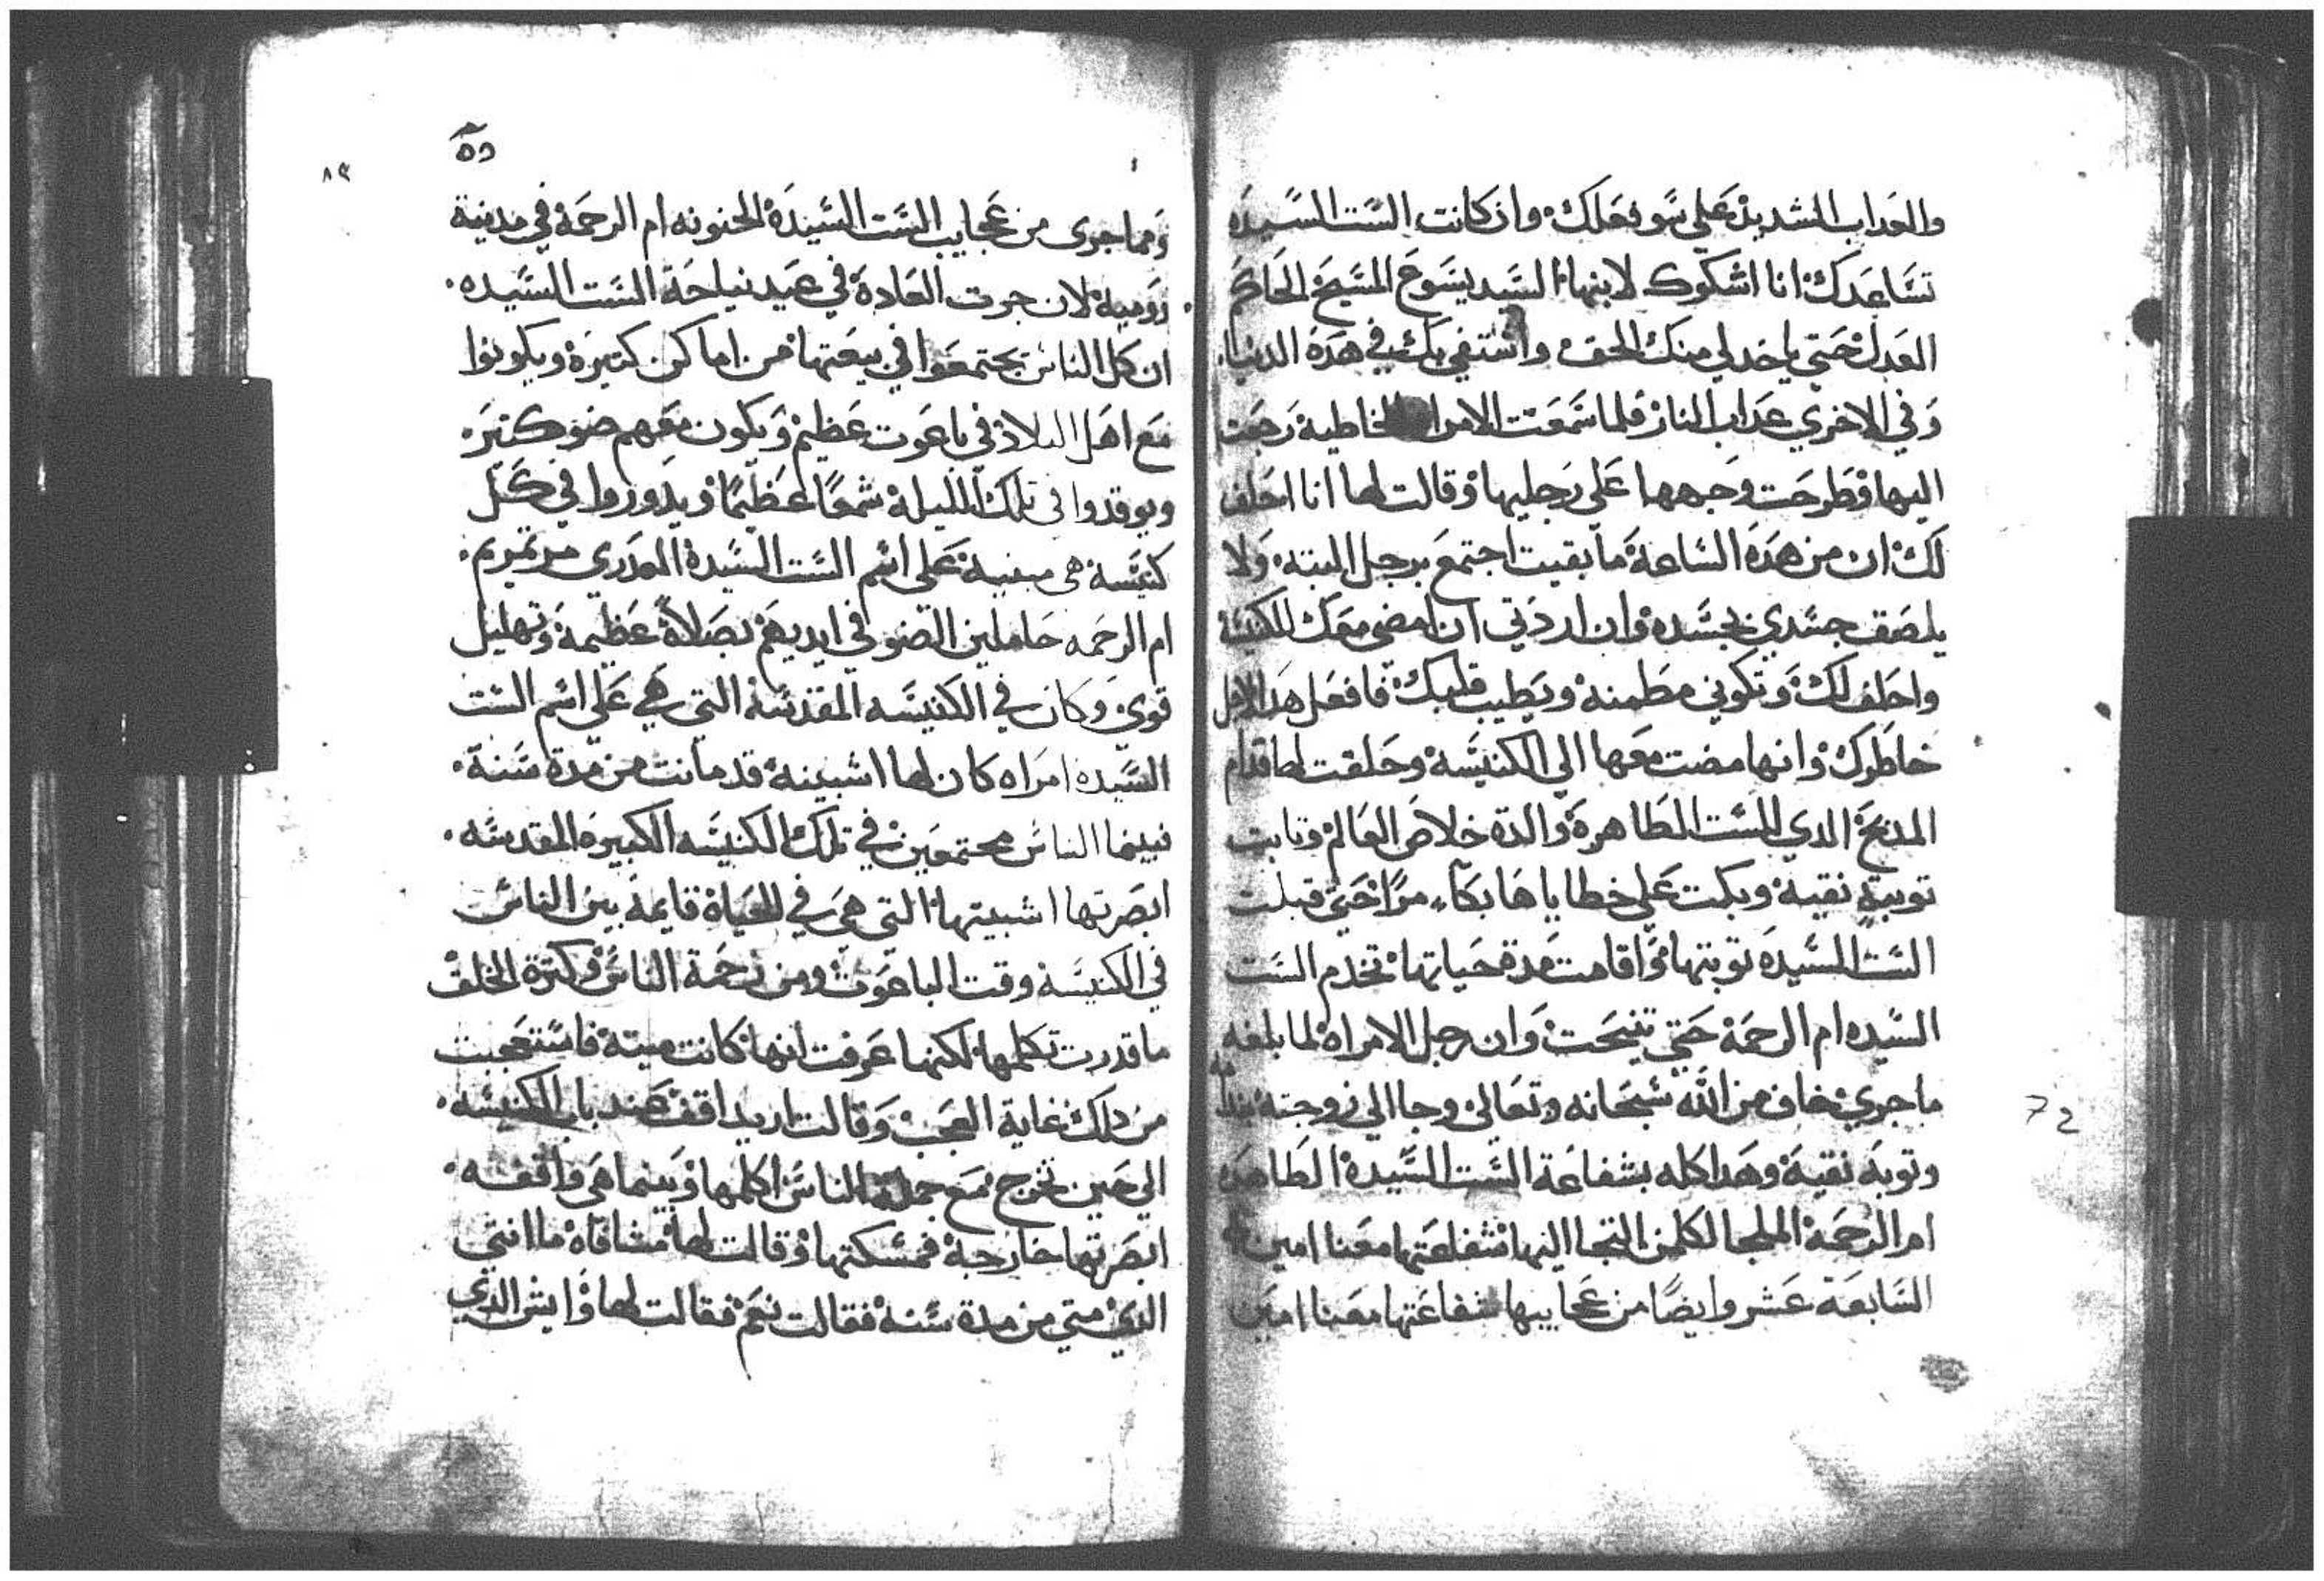 والعداب الشديد على سو فعلك وان كانت الست السيده
تساعدك انا اشكوك لابنها السيد يسوع المسيح الحاكم
العدل حتي ياخد لي منك الحق واشتفي بك في هده الدنيا
وفي الاخري عداب النار فلما سمعت الامراه الخاطية رجعت
اليها وطرحت وجهها علي رجليها وقالت لها انا احلف
لك ان من هده الساعة ما بقيت اجتمع برجل البتة ولا
يلصق جسدي بجسده وان اردتي ان امضي معك للكنيسة
واحلف لك وتكوني مطمنة ويطيب قلبك فافعل هدا لاجل
خاطرك وانها مضت معها الي الكنيسة وحلفت لها قدام
المدبح الدي للست الطاهرة والدة خلاص العالم وتابت
توبة نقية وبكت علي خطاياها بكاء مرا حتي قبلت
الست السيدة توبتها واقامت مدة حياتها تخدم الست
السيده ام الرحمة حتي تنيحت وان رجل الامراه لما بلغه
ما جري خاف من الله سبحانه وتعالي وجا الي زوجته
وتوبه نقية وهدا كله بشفاعة الست السيدة الطاهره
ام الرحمة الملجا لكلمن التجا اليها شفاعتها معنا امين
السابعة عشر وايضا من عجايبها شفاعتها معنا امين
72
٨٩
ومما جرى من عجايب الست السيدة الحنونه ام الرحمة في مدينة
رومية لان جرت العادة في عيد نياحة الست السيده
ان كل الناس يجتمعوا في بيعتها من اماكن كتيرة ويكونوا
مع اهل البلاد في باعوت عظيم ويكون معهم ضو كتير
ويوقدوا في تلك الليلة شمعا عظيما ويدوروا في كل
كنيسة هي مبنية علي اسم الست السيدة العدري مرتمريم
ام الرحمه حاملين الضو في ايديهم بصلاة عظيمة وتهليل
قوي وكان في الكنيسه المقدسة التي هي علي اسم الست
السيده امراه كان لها اشبينة قد ماتت من مدة سنة
فبينما الناس مجتمعين في تلك الكنيسه الكبيره المقدسه
ابصرتها اشبينتها التي هي في الحياة قايمة بين الناس
في الكنيسة وقت الباعوت ومن زحمة الناس وكترة الخلق
ما قدرت تكلمها لكنها عرفت انها كانت ميتة فاستعجبت
من دلك غاية العجب وقالت اريد اقف عند باب الكنيسه
الي حين تخرج مع جملة الناس اكلمها وبينما هي واقفه
ابصرتها خارجة فمسكتها وقالت لها ما انتي
الدي متي من مدة سنة فقالت نعم فقالت لها وايش الدي